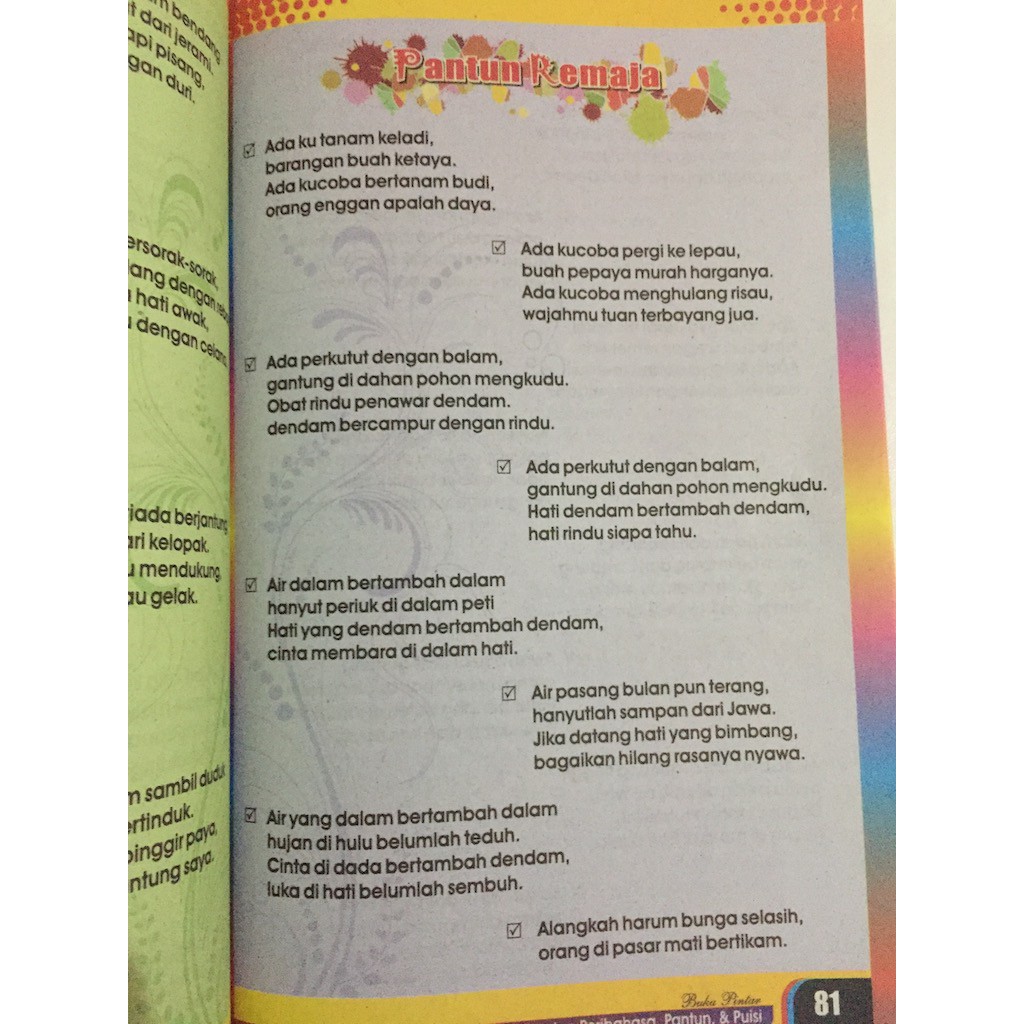 bendang
dari jerami.
pisang,
duri.
hati awak,
dengan
kelopak.
mendukung,
gelak.
sambil duduk
Pantun Remaja
Ada ku tanam keladi,
barangan buah ketaya.
Ada kucoba bertanam budi,
orang enggan apalah daya.
Ada kucoba pergi ke lepau,
buah pepaya murah harganya.
Ada kucoba menghulang risau,
wajahmu tuan terbayang jua.
Ada perkutut dengan balam,
gantung di dahan pohon mengkudu.
Obat rindu penawar dendam.
dendam bercampur dengan rindu.
Ada perkutut dengan balam,
gantung di dahan pohon mengkudu.
Hati dendam bertambah dendam,
hati rindu siapa tahu.
Air dalam bertambah dalam
hanyut periuk di dalam peti
Hati yang dendam bertambah dendam,
cinta membara di dalam hati.
Air pasang bulan pun terang,
hanyutlah sampan dari Jawa.
Jika datang hati yang bimbang,
bagaikan hilang rasanya nyawa.
Air yang dalam bertambah dalam
hujan di hulu belumlah teduh.
Cinta di dada bertambah dendam,
luka di hati belumlah sembuh.
Alangkah harum bunga selasih,
orang di pasar mati bertikam.
Buku Pintar
Peribahasa, Pantun, & Puisi
81